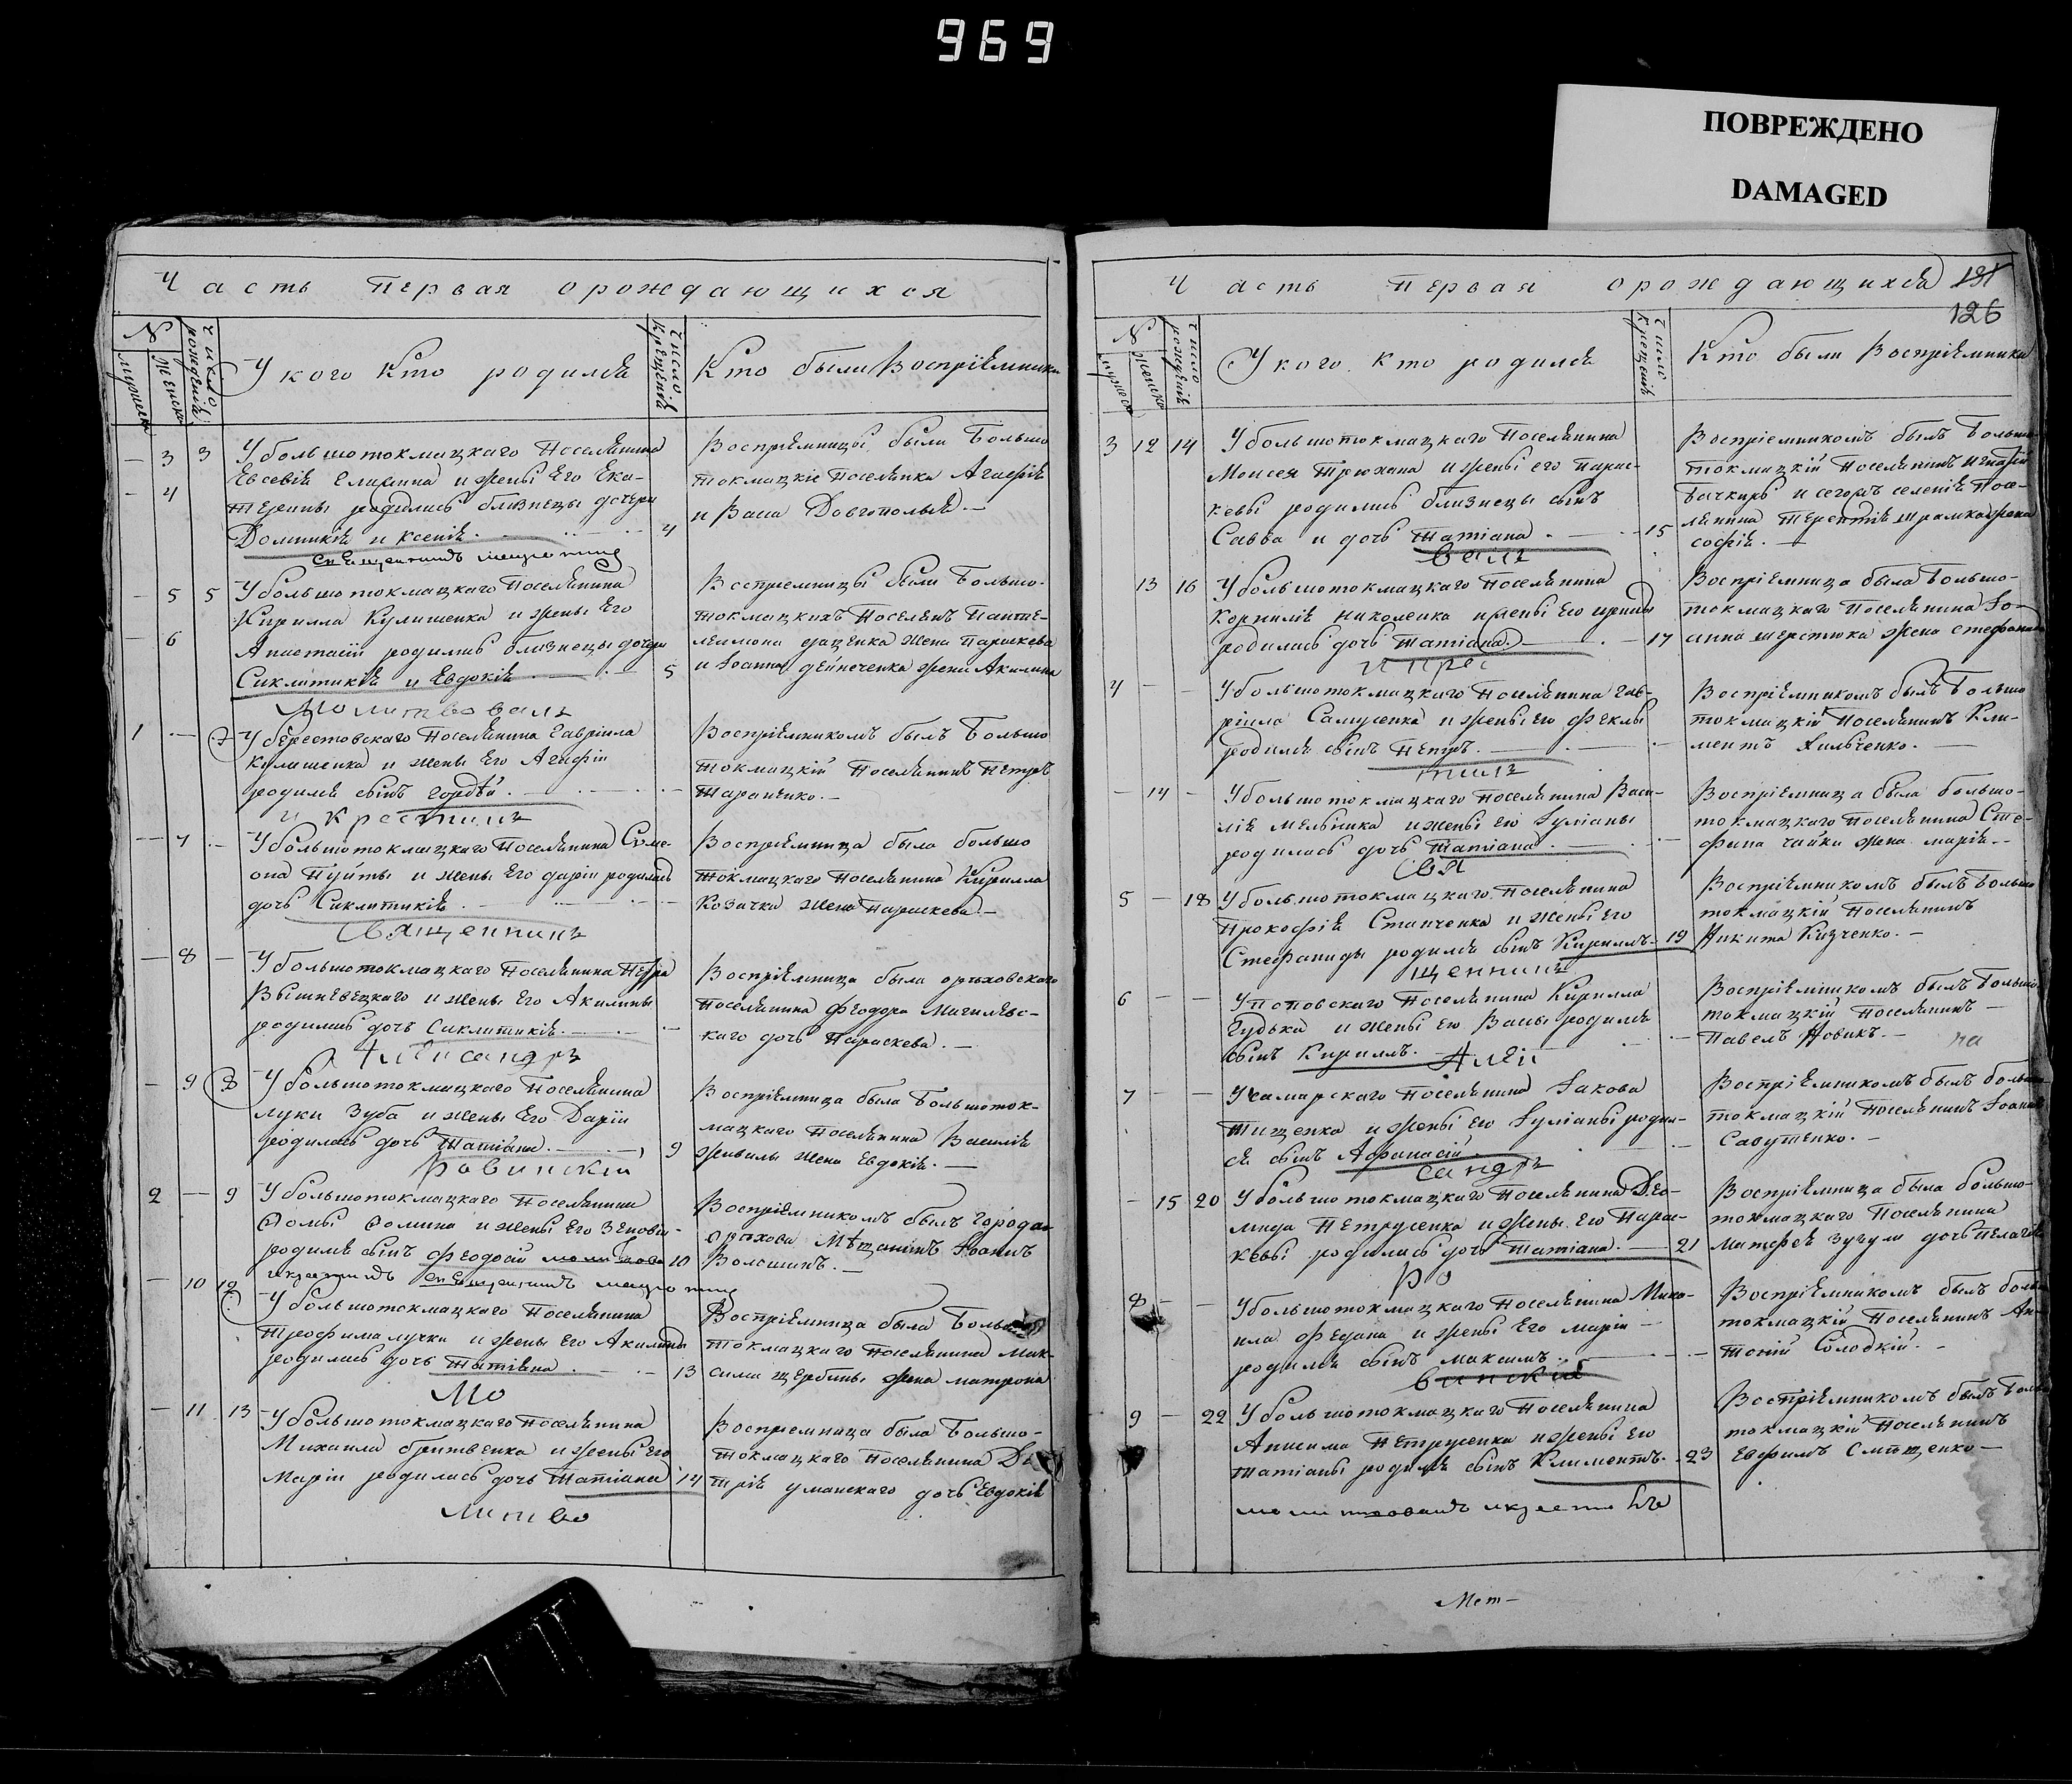 969
ПОВРЕЖДЕНО
DAMAGED
Часть первая орождающихся
№
мужеска
женска
число рождения
У кого кто родился
число крещенія
Кто были Воспріемники
3 3
4
У большотокмацкаго Поселянина
Евсевія и жены Его Ека-
терины родились близнецы дочери
Домникія и Ксенія. 4
Воспріемницы были Большо
токмацкіе Поселянка Агафія
и Васса Довгополыя. —
5 5
6
У большотокмацкаго Поселянина
Кирилла Кулишенка и жены Его
Анастасіи родились близнецы дочери
Сиклитикія и Евдокія. 5
Воспріемницы были Большо-
токмацкихъ Поселянъ Панте-
леимона жена Параскева
и Іоанна Дейнеченка жена Акилина
молитвовалъ
1 — 7
У берестовскаго Поселянина Гавріила
Кулишенка и жены Его Агафіи
родился сынъ Гордѣй. —
Воспріемникомъ былъ Большо
токмацкій Поселянинъ Петръ
Тараненко. —
и крестилъ
— 7 —
У большотокмацкаго Поселянина Симе-
она Пуйты и жены Его Даріи родилась
дочь Сиклитикія. —
Воспріемница была большо
токмацкаго Поселянина Кирилла
Козачка жена Параскева —
Священникъ
— 8 —
У большотокмацкаго Поселянина Петра
Вышневецкаго и жены Его Акилины
родилась дочь Сиклитикія. —
Воспріемница была орѣховскаго
Поселянина Феодора Магилевс-
каго дочь Параскева. —
Александръ
— 9 8
У большотокмацкаго Поселянина
Луки Зуба и жены Его Даріи
родилась дочь Татіана. — 9
Воспріемница была Большоток-
мацкаго Поселянина Василія
жена Евдокія. —
ровинскій
2 — 9
У большотокмацкаго Поселянина
Фомы Фомина и жены Его Зеновіи
родился сынъ Феодосій 10
Воспріемникомъ былъ города
орѣхова Мѣщанинъ Іоаннъ
Волошинъ. —
— 10 12
У большотокмацкаго Поселянина
Трофима Лучки и жены Его Акилины
родилась дочь Татіана. — 13
Воспріемница была Больш
токмацкаго Поселянина Мак-
сима Щербины жена Матрона
Мо
— 11 13
У большотокмацкаго Поселянина
Михаила Бритвенка и жены Его
Маріи родилась дочь Татіана 14
Воспріемница была Большо-
токмацкаго Поселянина
трія Уманскаго дочь Евдокія
литво
Часть первая орождающихся 131
126
№
мужеска
женска
число рожденія
У кого кто родился
число крещенія
Кто были Воспріемники
3 12 14
У большотокмацкаго Поселянина
Моисея Трюхана и жены его Парас-
кевы родились близнецы сынъ
Савва и дочь Татіана. — 15
Воспріемникомъ былъ Большо
токмацкій Поселянинъ Игнатій
Бачкиръ и сегожъ селенія Посе-
лянина Терентія жена
софія. —
валъ
13 16
У большотокмацкаго Поселянина
Корнилія Николенка и жены Его Ирины
родилась дочь Татіана. — 17
Воспріемница была Большо-
токмацкаго Поселянина Іо-
анна Шерстюка жена Стефанида
и крес
4 — —
У большотокмацкаго Поселянина Гав-
ріила Самусенка и жены Его Феклы
родился сынъ Петръ. —
Воспріемникомъ былъ Большо
токмацкій Поселянинъ Кли-
ментъ Хильченко. —
тилъ
— 14 —
У большотокмацкаго Поселянина Васи-
лія Мельника и жены Его Іуліаны
родилась дочь Татіана. —
Воспріемница была большо-
токмацкаго Поселянина Сте-
фана Чайки жена Марія. —
Свя
5 — 18
У большотокмацкаго Поселянина
Прокофія Станченка и жены Его
Стефаниды родился сынъ Кириллъ. 19
Воспріемникомъ былъ Большо
токмацкій Поселянинъ
Никита Кизченко. —
щенникъ
6 — —
У поповскаго Поселянина Кирилла
Гудька и жены Его Вассы родился
сынъ Кириллъ. —
Воспріемникомъ былъ Большо
токмацкій Поселянинъ —
Павелъ Новикъ. —
Алек
7 — —
У камарскаго Поселянина Іакова
Тищенка и жены Его Іуліаны родил-
ся сынъ Афанасій —
Воспріемникомъ былъ больш
токмацкій Поселянинъ Іоаннъ
Савутенко. —
сандръ
— 15 20
У большотокмацкаго Поселянина Део-
мида Петрусенка и жены Его Парас-
кевы родилась дочь Татіана. — 21
Воспріемница была большо-
токмацкаго Поселянина
Матфея Зузули дочь Пелагея
Ро
8 — —
У большотокмацкаго Поселянина Миха-
ила Федана и жены Его Маріи —
родился сынъ Максимъ. —
Воспріемникомъ былъ боль
токмацкій Поселянинъ Ан-
тоній Солодкій. —
винскій
9 — 22
У большотокмацкаго Поселянина
Анисима Петрусенка и жены Его
Татіаны родился сынъ Климентъ. 23
Воспріемникомъ былъ Боль
токмацкій Поселянинъ
Евфимъ —
молитвовалъ и крестилъ
Мет-